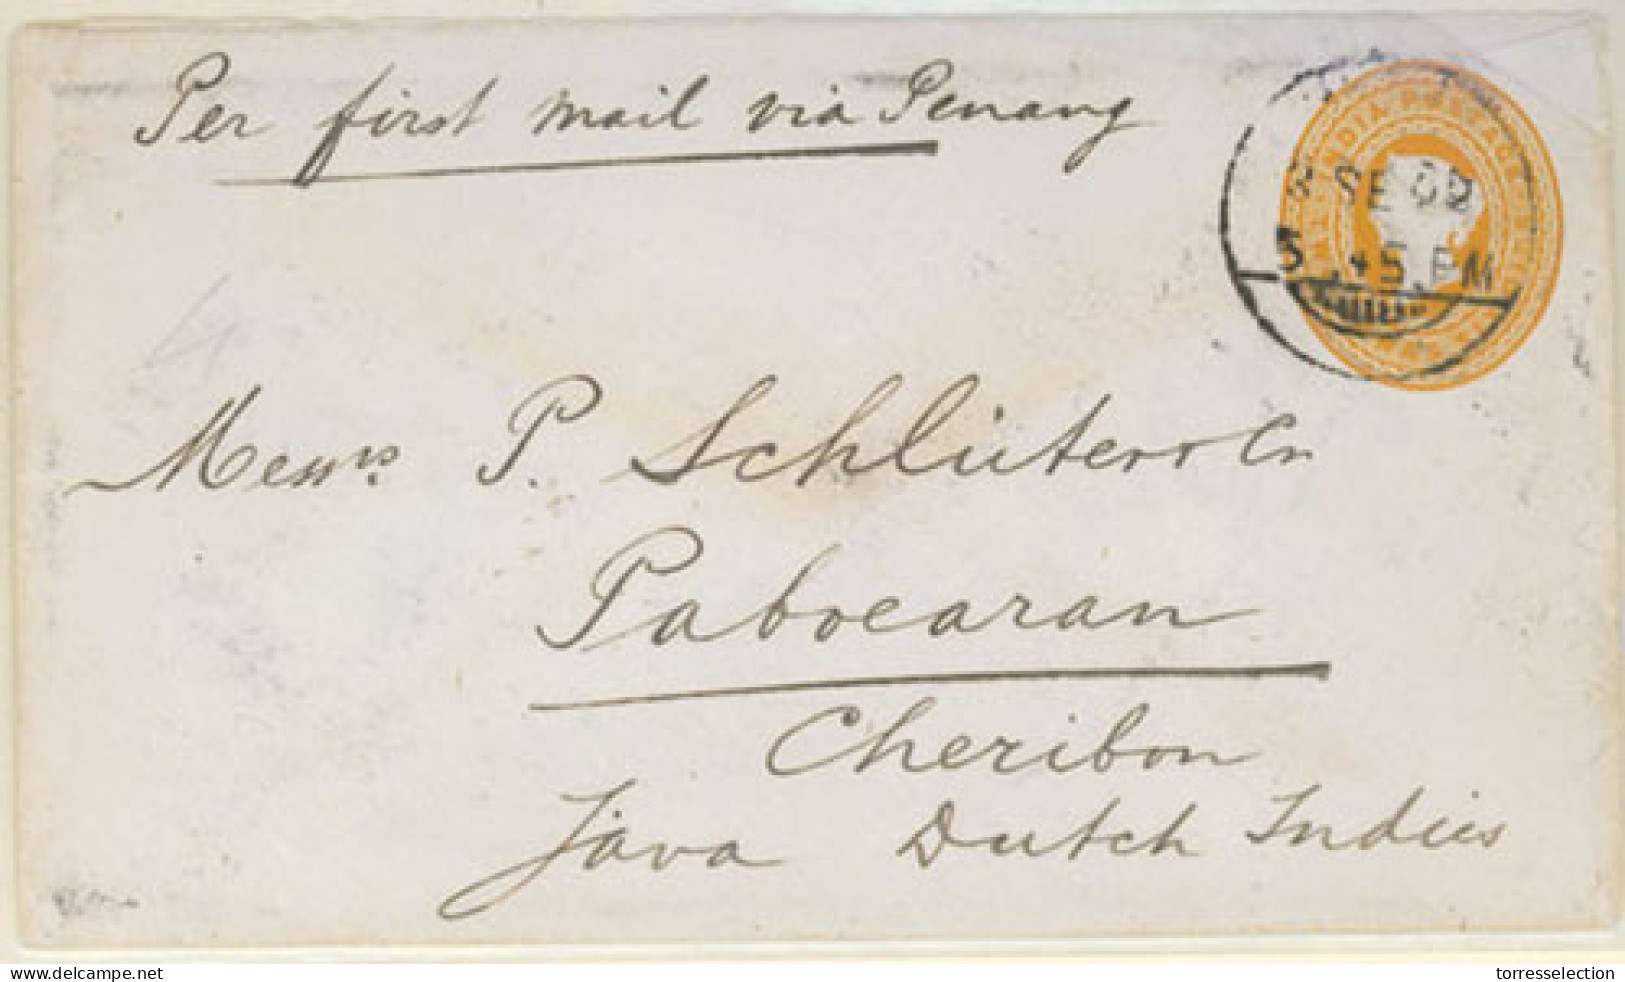 Per first mail via Penang
INDIA POSTAGE
SE 02
5.45.PM
Messrs P. Schlüter & Co
Paboearan
Cheribon
Java Dutch Indies
www.delcampe.net
torresselection